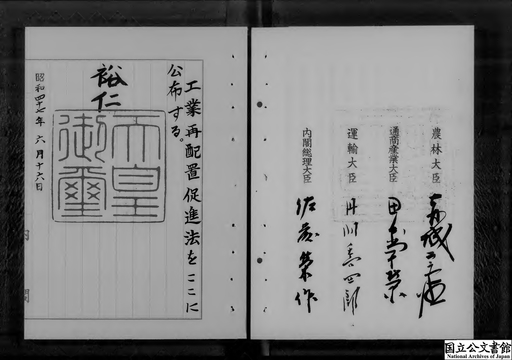 農林大臣 赤城宗徳
通商産業大臣 田中角栄
運輸大臣 丹羽喬四郎
内閣総理大臣 佐藤栄作
工業再配置促進法をここに
公布する。
裕仁
天皇
御璽
昭和四十七年六月十六日
国立公文書館
National Archives of Japan